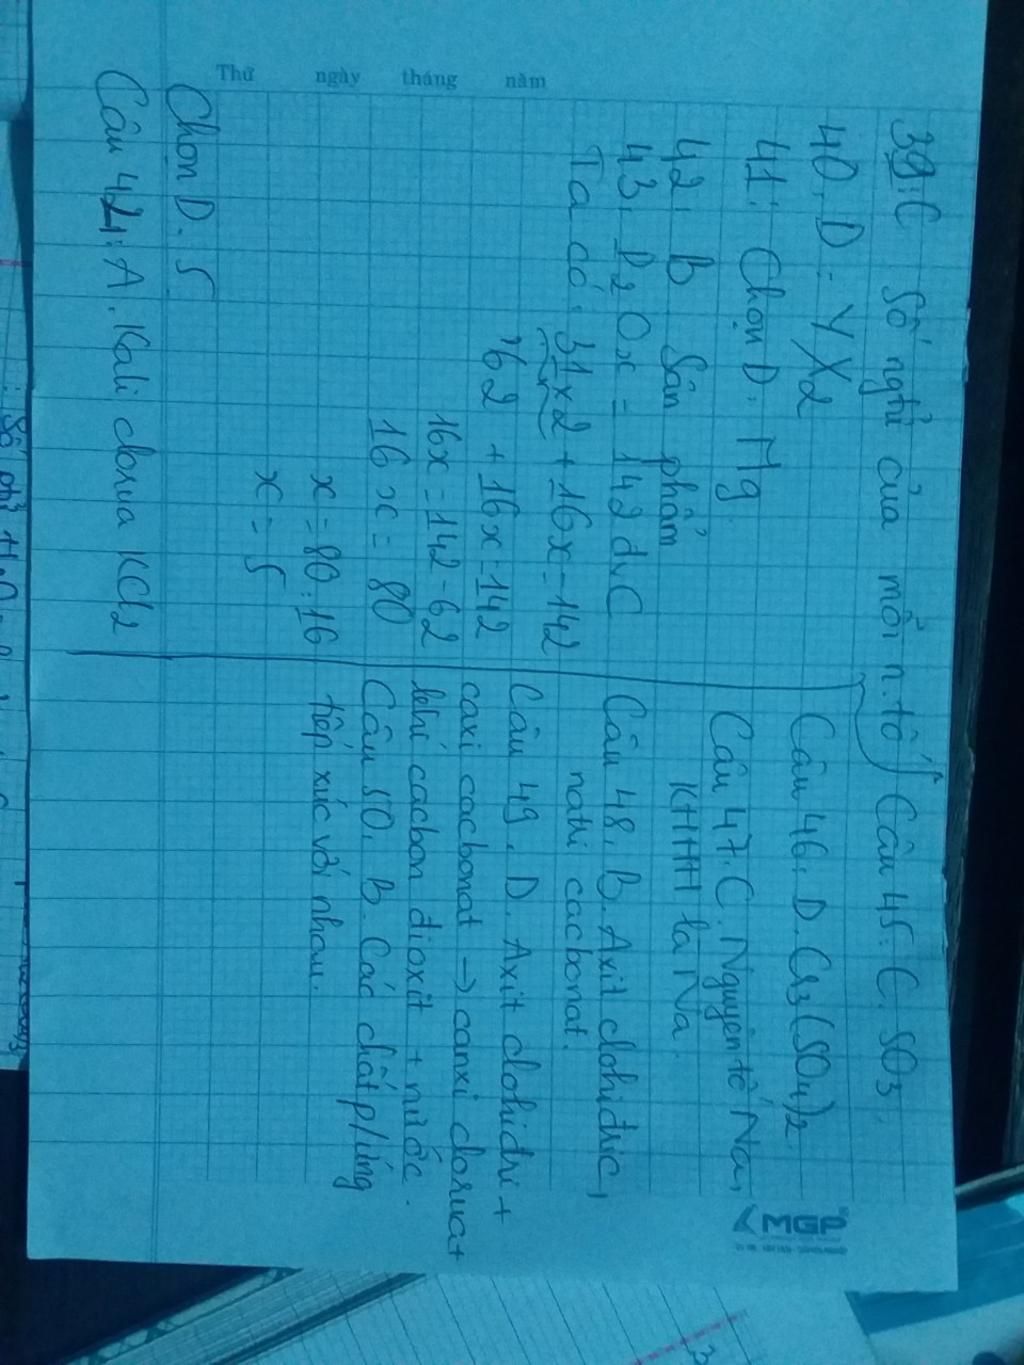 Thứ ngày tháng năm
39: C Số ngtử của mỗi n.tố
40. D: YX2
41: Chọn D: Mg
42: B Sản phẩm
43. P2Ox = 142 dvC
Ta có: 31x2 + 16x = 142
62 + 16x = 142
16x = 142 - 62
16x = 80
x = 80:16
x = 5
Chọn D. 5
Câu 44: A. Kali clorua KCl2
Câu 45: C. SO3
Câu 46: D. Cr3(SO4)2
Câu 47: C. Nguyên tố Na,
KHHH là Na.
Câu 48. B. Axit clohidric,
natri cacbonat.
Câu 49. D. Axit clohidri +
caxi cacbonat → canxi clorua +
khí cacbon dioxit + nước.
Câu 50. B. Các chất p/ứng
tiếp xúc với nhau.
MGP